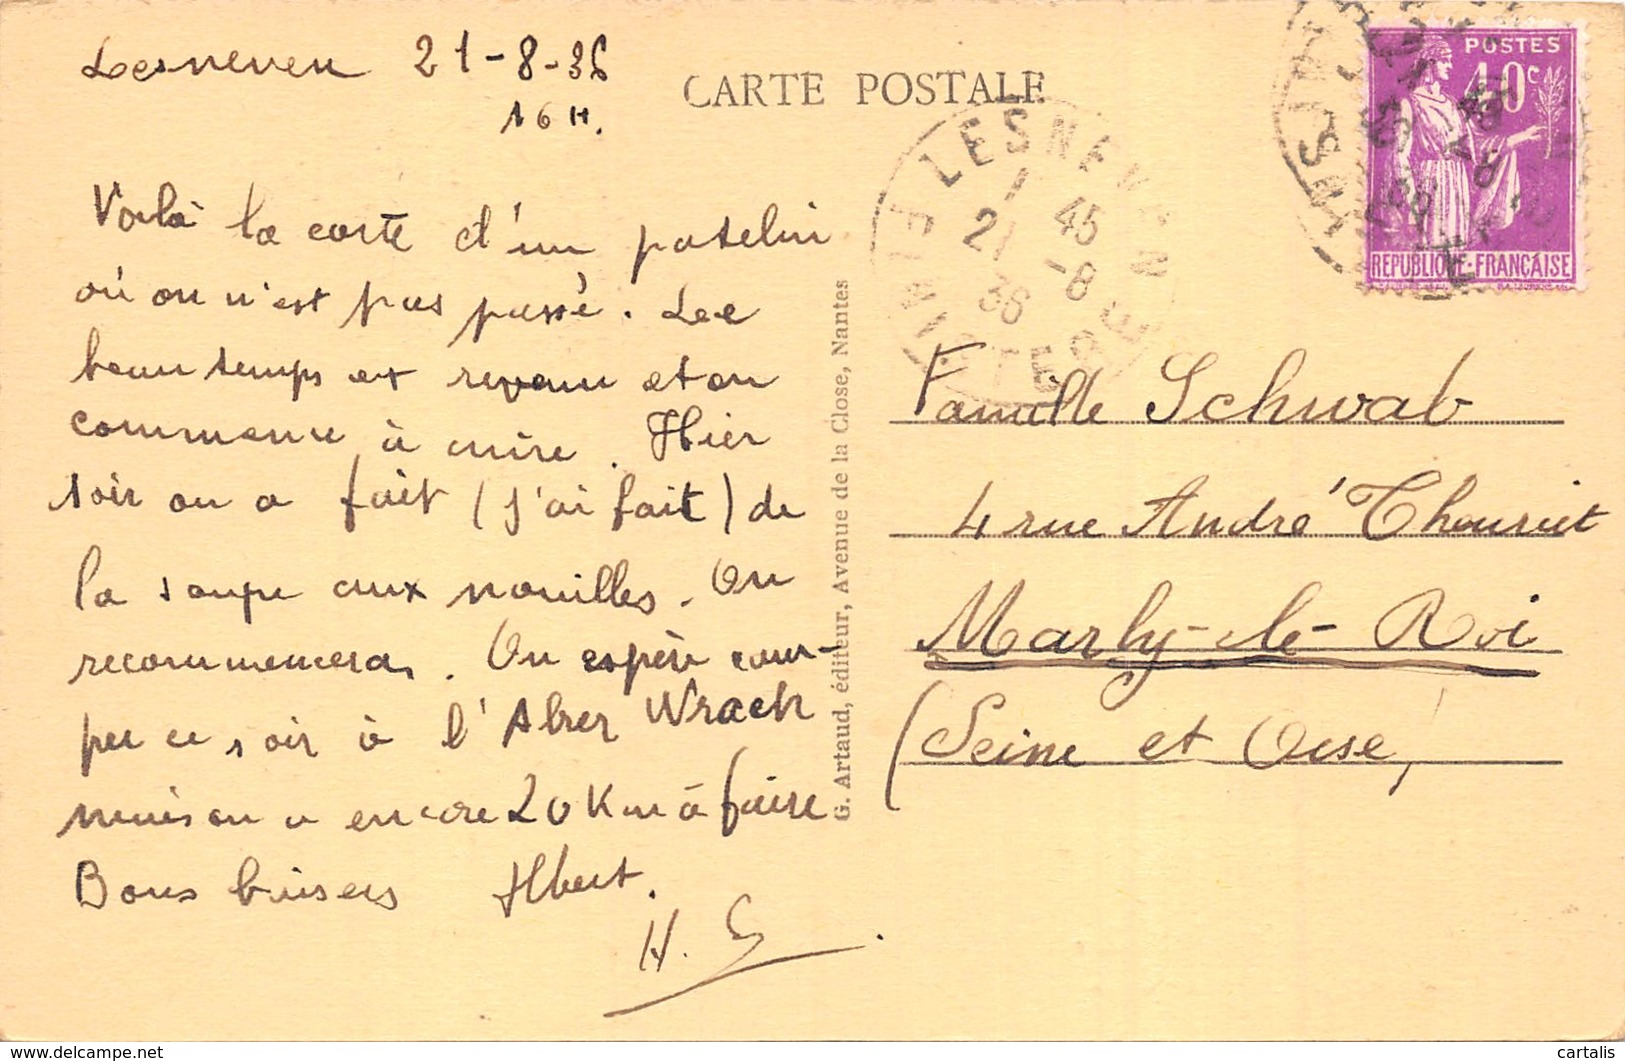 Lesneven 21-8-36
16 H.
CARTE POSTALE
Voilà la carte d'un patelin
où on n'est pas passé. Le
beau temps est revenu et on
commence à cuire. Hier
soir on a fait (j'ai fait) de
la soupe aux nouilles. On
recommencera. On espère cam-
per ce soir à l'Aber Wrach
mais on a encore 20 Km à faire
Bons baisers Albert.
H. G.
G. Artaud, éditeur, Avenue de la Close, Nantes
LESNEVEN
1 45
21 -8
36
FINISTERE
POSTES
40c
REPUBLIQUE-FRANÇAISE
Famille Schwab
4 rue André Theuriet
Marly-le-Roi
(Seine et Oise)
cartalis